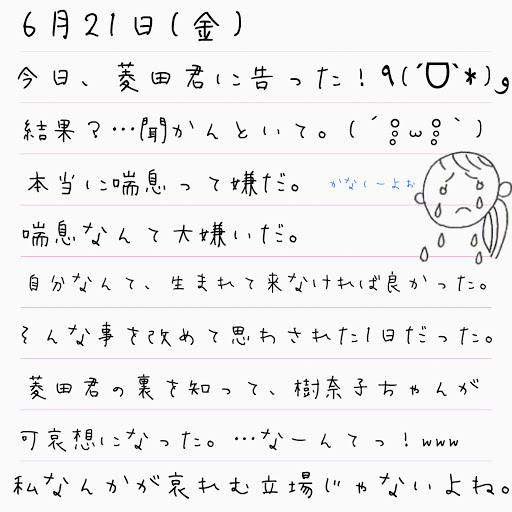 6月21日(金)
今日、菱田君に告った！٩(´ᗜ`*)و
結果？…聞かんといて。(´；ω；`)
本当に喘息って嫌だ。
かなしーよぉ
喘息なんて大嫌いだ。
自分なんて、生まれて来なければ良かった。
そんな事を改めて思わされた1日だった。
菱田君の裏を知って、樹奈子ちゃんが
可哀想になった。…なーんてっ！www
私なんかが哀れむ立場じゃないよね。